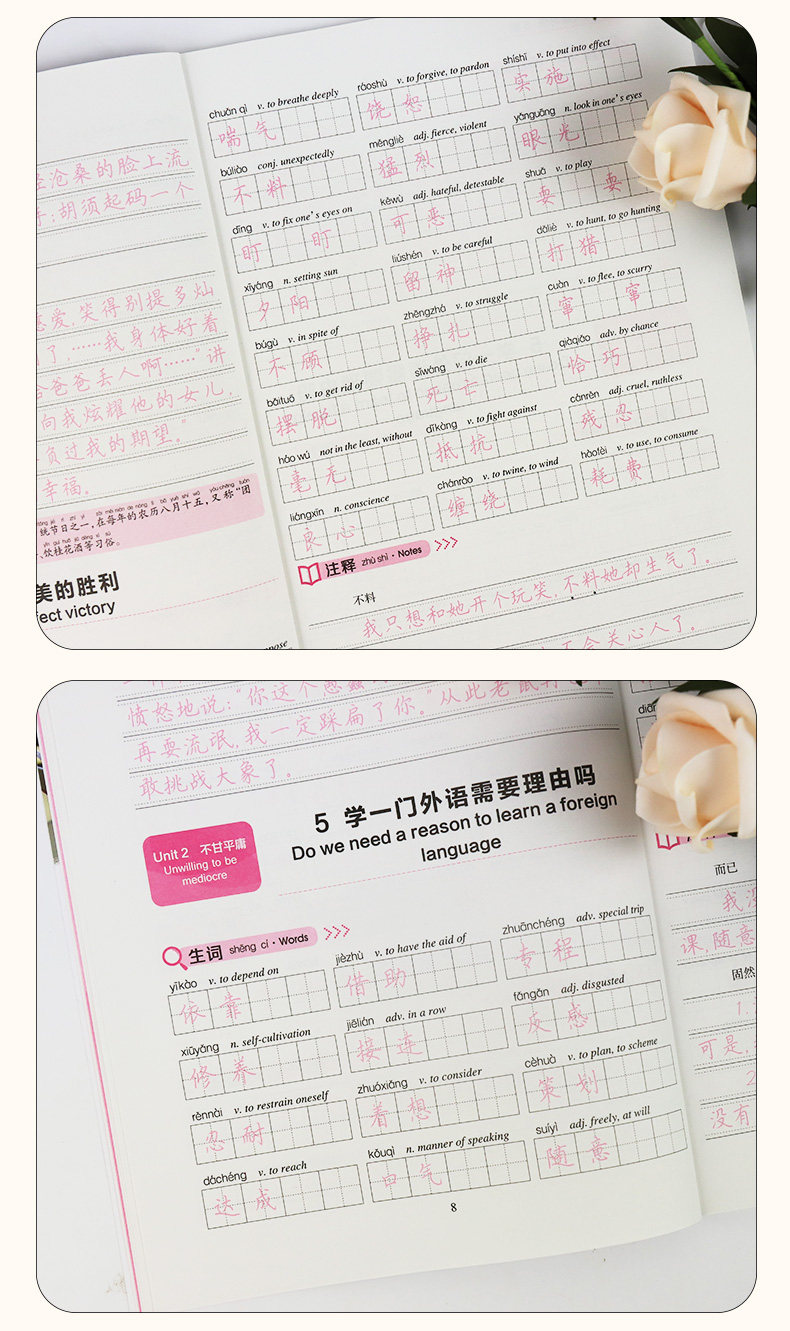 经沧桑的脸上流
子;胡须起码一个
恩爱,笑得别提多灿
了……我身体好着
给爸爸丢人啊……”讲
向我炫耀他的女儿
负过我的期望。”
幸福。
统节日之一,在每年的农历八月十五,又称“团
、饮桂花酒等习俗。
美的胜利
fect victory
chuǎn qì v. to breathe deeply
喘气
ráoshù v. to forgive, to pardon
饶恕
shíshī v. to put into effect
实施
búliào conj. unexpectedly
不料
měngliè adj. fierce, violent
猛烈
yǎnguāng n. look in one's eyes
眼光
dīng v. to fix one's eyes on
盯 盯
kěwù adj. hateful, detestable
可恶
shuǎ v. to play
耍 耍
xīyáng n. setting sun
夕阳
liúshén v. to be careful
留神
dǎliè v. to hunt, to go hunting
打猎
búgù v. in spite of
不顾
zhēngzhá v. to struggle
挣扎
cuàn v. to flee, to scurry
窜 窜
bǎituō v. to get rid of
摆脱
sǐwáng v. to die
死亡
qiàqiǎo adv. by chance
恰巧
háo wú not in the least, without
毫无
dǐkàng v. to fight against
抵抗
cánrěn adj. cruel, ruthless
残忍
liángxīn n. conscience
良心
chánrào v. to twine, to wind
缠绕
hàofèi v. to use, to consume
耗费
注释 zhù shì · Notes
不料
我只想和她开个玩笑,不料她却生气了。
不会关心人了。
愤怒地说:“你这个愚蠢
你。”从此老鼠
再耍流氓,我一定踩扁了你。”从此老鼠
敢挑战大象了。
5 学一门外语需要理由吗
Do we need a reason to learn a foreign
language
Unit 2 不甘平庸
Unwilling to be
mediocre
生词 shēng cí · Words
yīkào v. to depend on
依靠
jièzhù v. to have the aid of
借助
zhuānchéng adv. special trip
专程
xiūyǎng n. self-cultivation
修养
jiēlián adv. in a row
接连
fǎngǎn adj. disgusted
反感
rěnnài v. to restrain oneself
忍耐
zhuóxiǎng v. to consider
着想
cèhuà v. to plan, to scheme
策划
dáchéng v. to reach
达成
kǒuqì n. manner of speaking
口气
suíyì adj. freely, at will
随意
8
而已
我没
课,随意
固然
可是,
没有